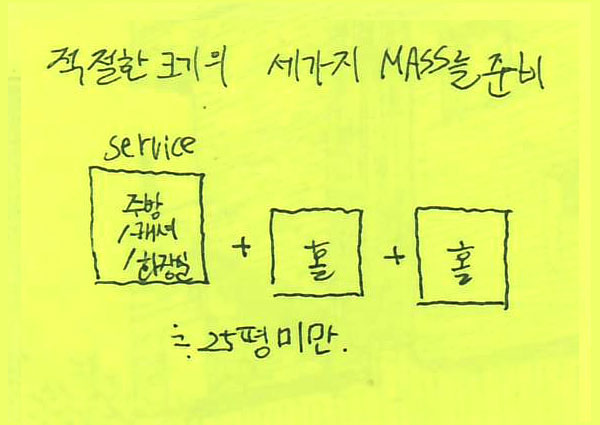 적절한 크기의 세가지 MASS를 준비
service
주방
/캐셔
/화장실
+ 홀 + 홀
≒ 25평 미만.